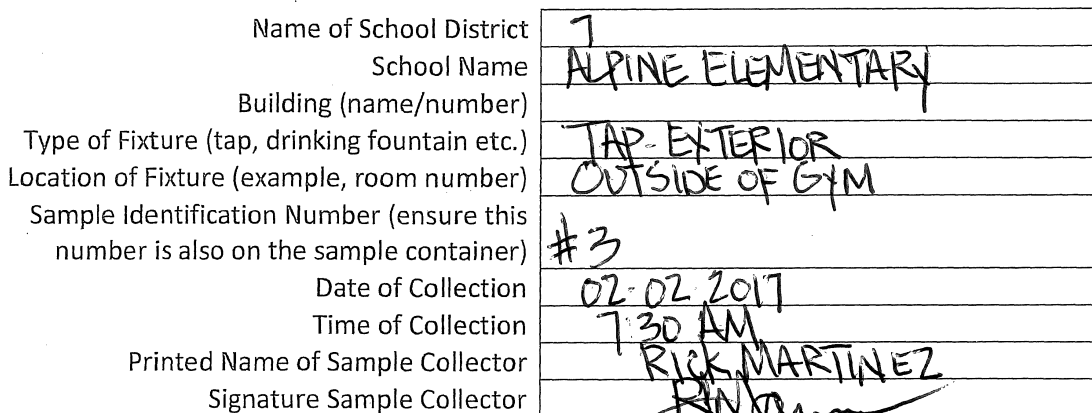 Name of School District 7
School Name ALPINE ELEMENTARY
Building (name/number)
Type of Fixture (tap, drinking fountain etc.) TAP- EXTERIOR
Location of Fixture (example, room number) OUTSIDE OF GYM
Sample Identification Number (ensure this
number is also on the sample container) #3
Date of Collection 02-02-2017
Time of Collection 7 30 AM
Printed Name of Sample Collector RICK MARTINEZ
Signature Sample Collector